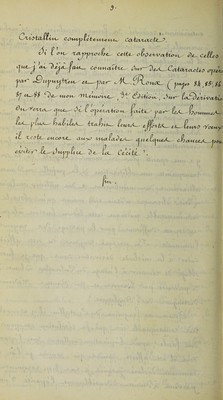 9.
Cristallin complètement cataracté.
Si l'on rapproche cette observation de celles
que j'ai déjà fait connaître sur des Cataractes opéré
par Dupuytren et par M. Roux (pages 84, 85, 86
87 et 88 de mon mémoire 3e Edition, sur la dérivation
on verra que si l'opération faite par les hommes
les plus habiles trahie leurs efforts et leurs vœux
il reste encore aux malades quelques chances pour
éviter le Supplice de la Cécité.
fin.